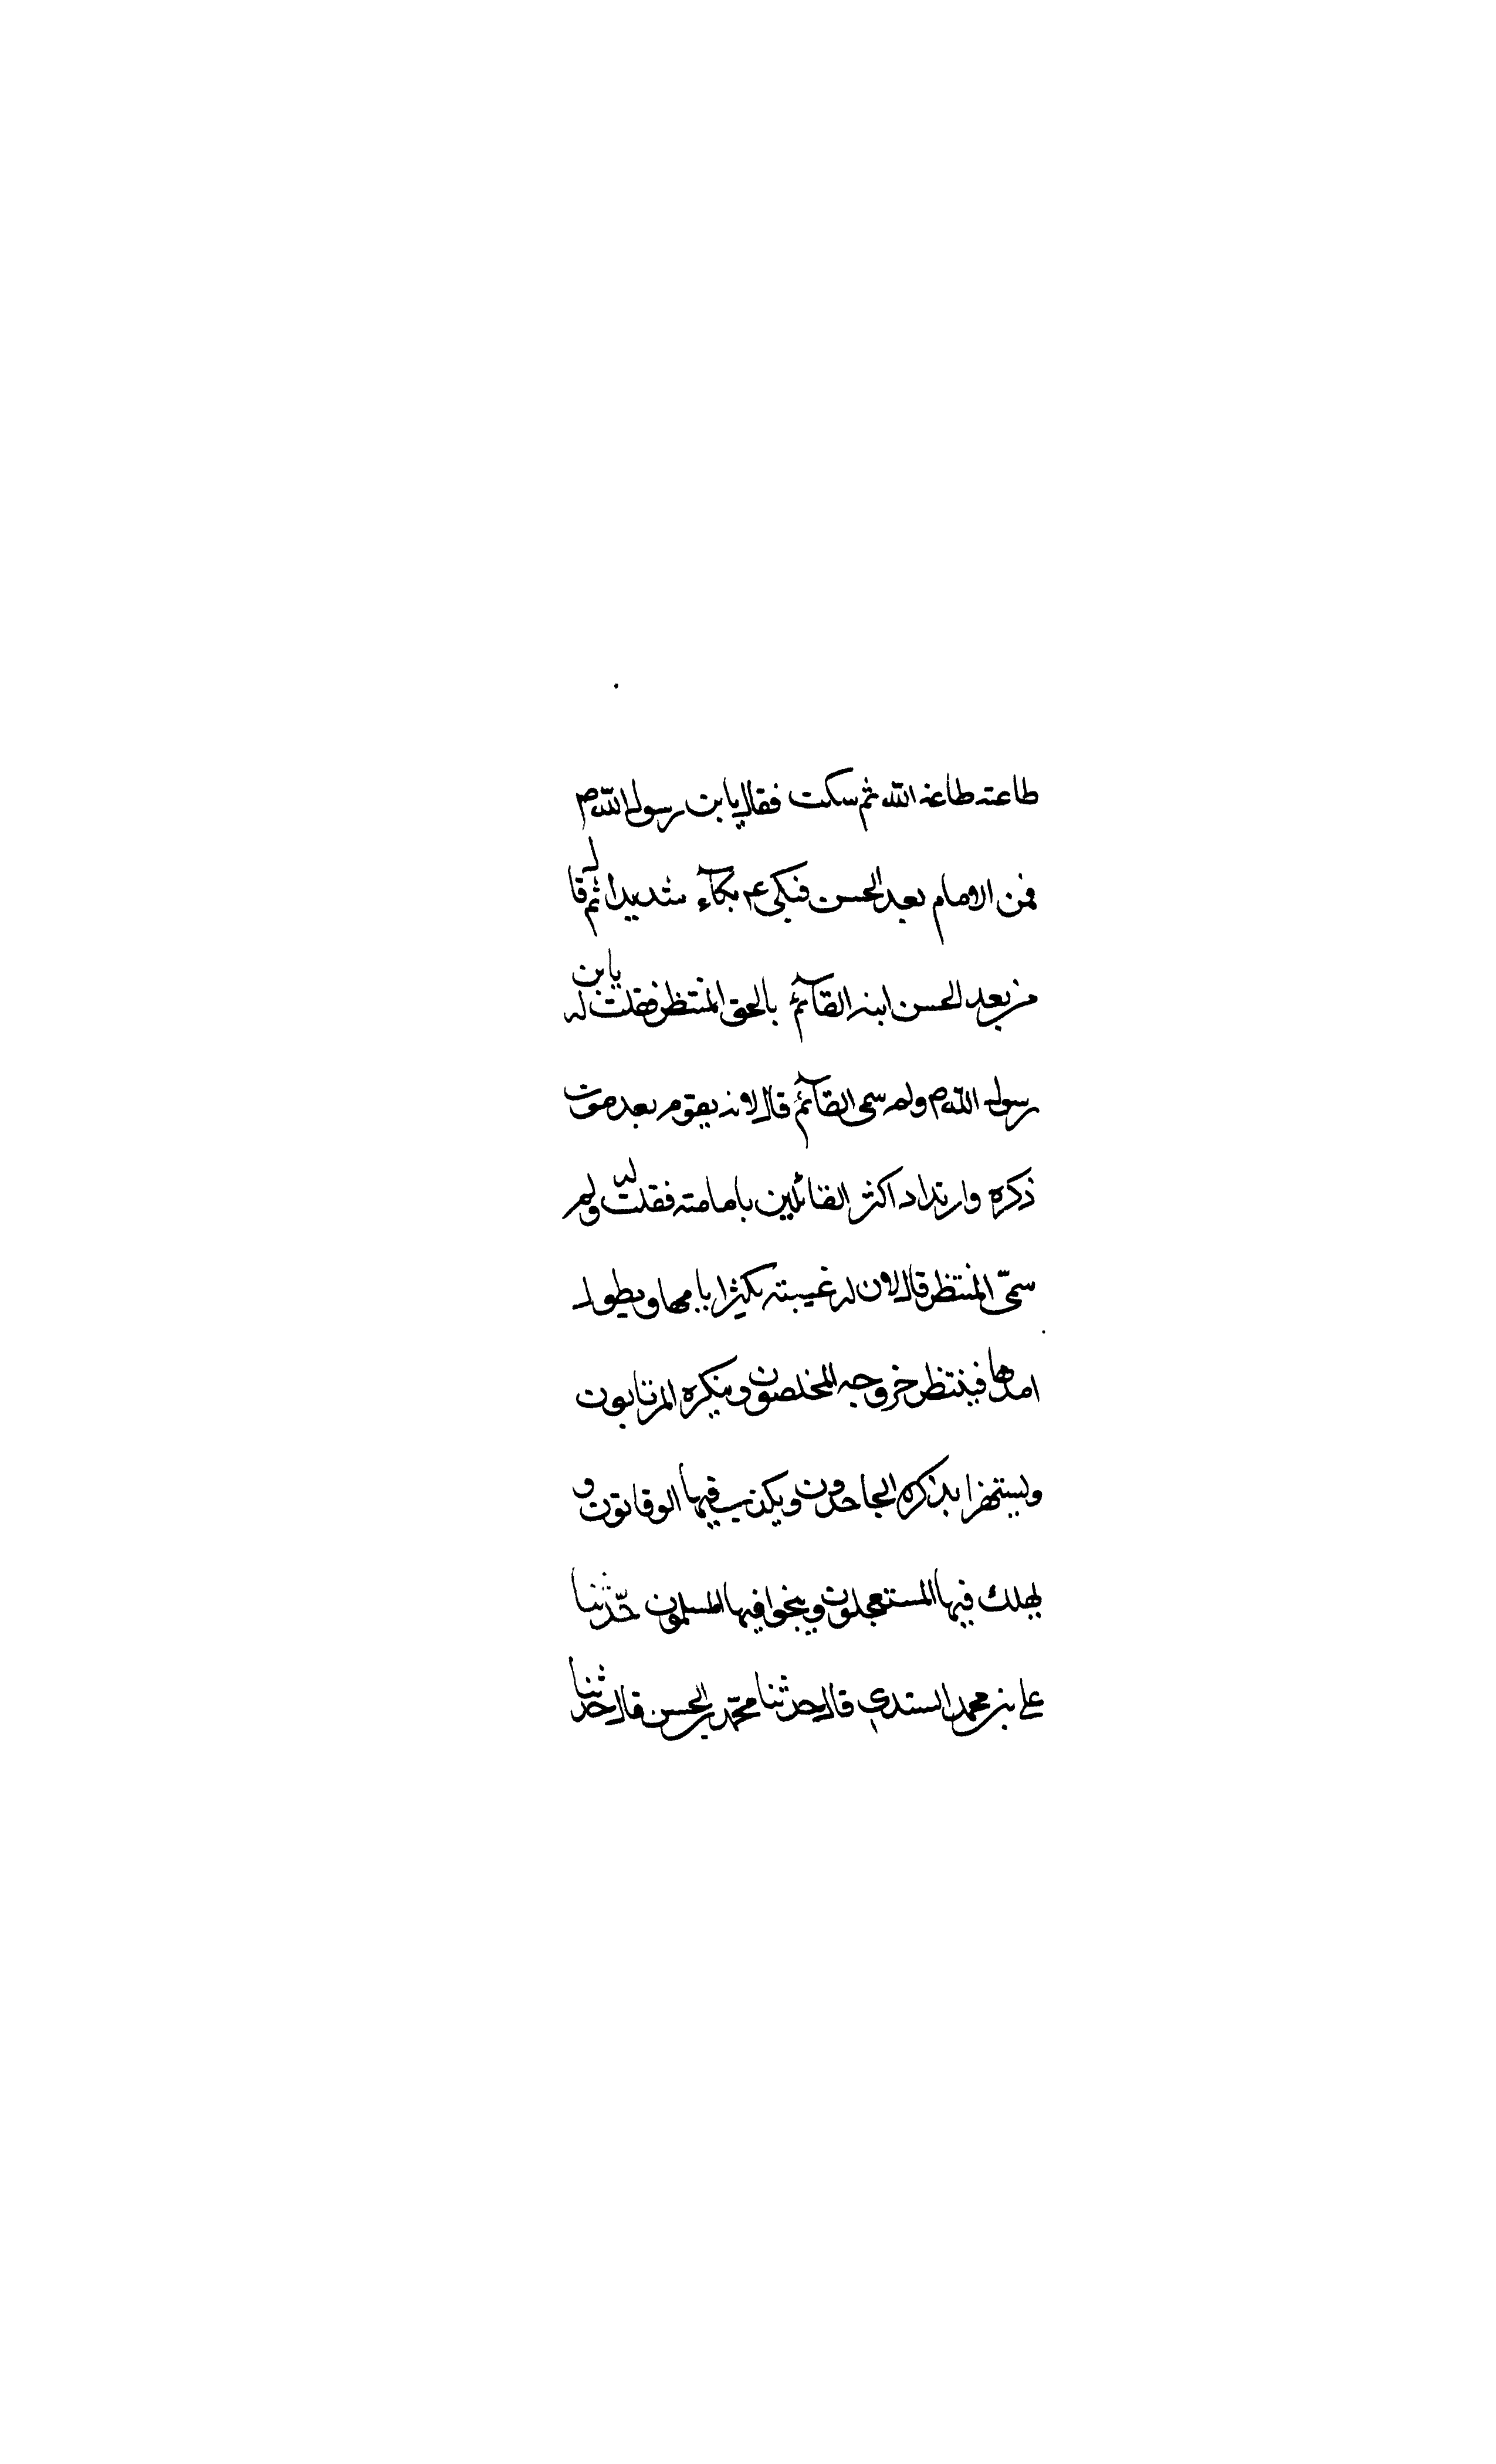 طاعته طاعة الله ثم سكت فقال يا بن رسول الله ص
فمن الامام بعد الحسن فبكى ع م بكآء شديدا ثم قال
من بعد الحسن ابنه القآئم بالحق المنتظر فقلت له يا بن
رسول الله ص ولم سمى القآئم قال لانه يقوم بعد موت
ذكره وارتداد اكثر القائلين بامامته فقلت له ولم
سمّى المنتظر قال لان له غيبته يكثر ايامها ويطول
امدها فينتظر خروجه المخلصون وينكره المرتابون
ويستهزا بذكره الجاحدون ويكذب فيها الوقاتون و
يهلك فيها المستعجلون وينجوا فيها المسلمون حدّثنا
على بن محمد السندي قال حدثنا محمّد بن الحسن قال حدثنا